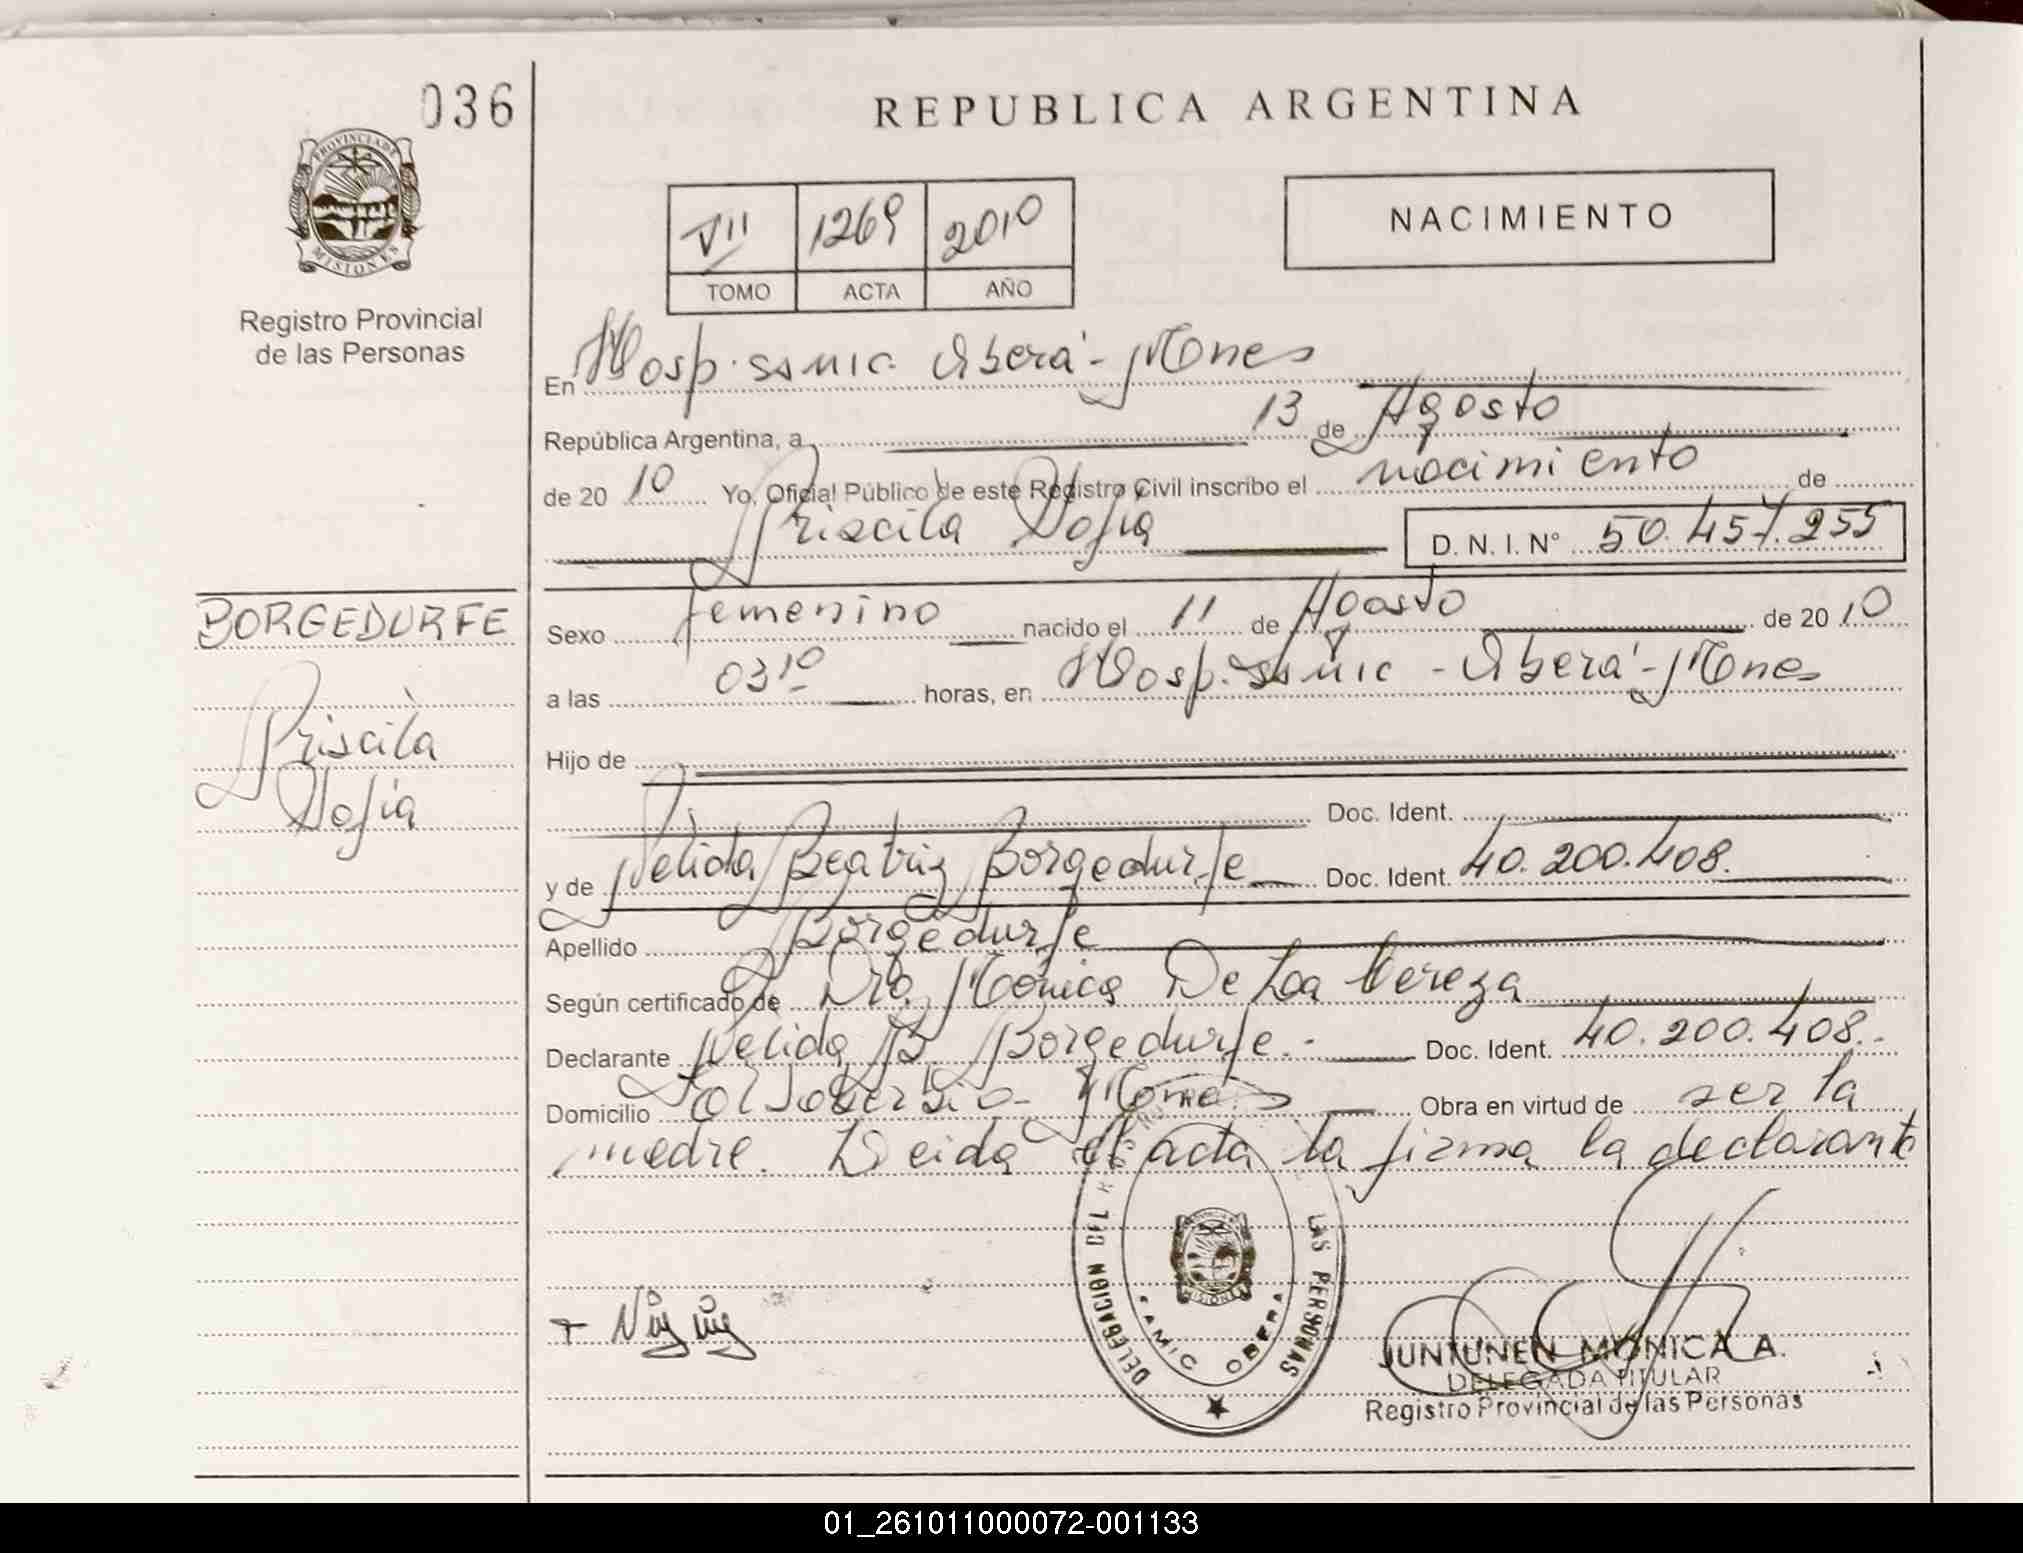 036
PROVINCIA DE
MISIONES
Registro Provincial
de las Personas
BORGEDURFE
Priscila
Sofia
REPUBLICA ARGENTINA
VII 1269 2010
TOMO ACTA AÑO
NACIMIENTO
En Hosp. SAMIC Oberá - Mones
República Argentina, a 13 de Agosto
de 20 10 Yo, Oficial Público de este Registro Civil inscribo el nacimiento de
Priscila Sofia D. N. I. N° 50.457.255
Sexo femenino nacido el 11 de Agosto de 20 10
a las 03 10 horas, en Hosp. SAMIC - Oberá - Mones
Hijo de
Doc. Ident.
y de Nelida Beatriz Borgedurfe Doc. Ident. 40.200.408.
Apellido Borgedurfe
Según certificado de Dra. Mónica De Loa
Declarante Nelida B. Borgedurfe.- Doc. Ident. 40.200.408.-
Domicilio Col Soberbio - Mones Obra en virtud de ser la
madre. Leida el acta la firma la declarante
DELEGACION DEL LAS PERSONAS
SAMIC OBERA
MISIONES
JUNTUNEN MONICA A.
DELEGADA TITULAR
Registro Provincial de las Personas
01_261011000072-001133